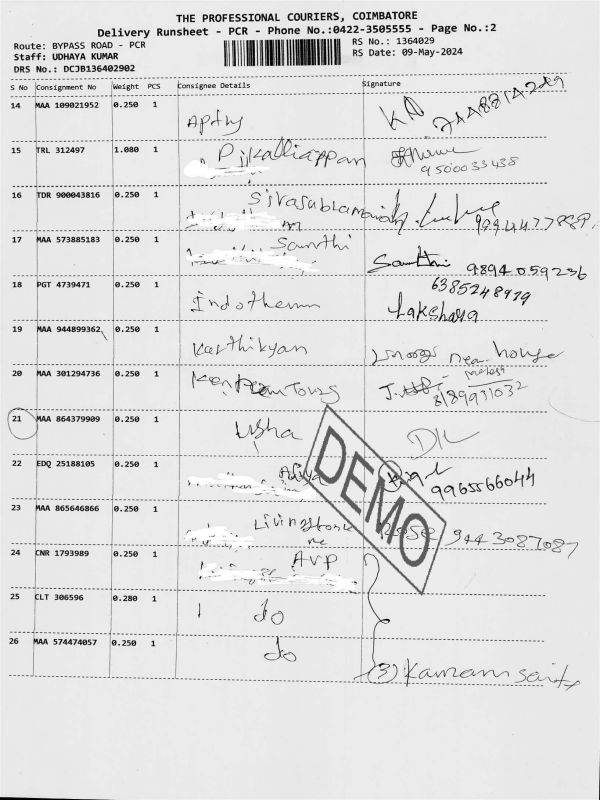 THE PROFESSIONAL COURIERS, COIMBATORE
Delivery Runsheet - PCR - Phone No.:0422-3505555 - Page No.:2
Route: BYPASS ROAD - PCR
Staff: UDHAYA KUMAR
DRS No.: DCJB136402902
RS No.: 1364029
RS Date: 09-May-2024
S No Consignment No Weight PCS Consignee Details Signature
14 MAA 109021952 0.250 1
15 TRL 312497 1.080 1 9500033438
16 TDR 900043816 0.250 1
17 MAA 573885183 0.250 1 Santhi Santhi 9894059236
18 PGT 4739471 0.250 1 Indotherm 6385248979
Lakshara
19 MAA 944899362 0.250 1 Karthikyan near house
20 MAA 301294736 0.250 1 Tours 8189931032
21 MAA 864379909 0.250 1 Usha
22 EDQ 25188105 0.250 1 9965566044
23 MAA 865646866 0.250 1 Livingstone 9443087087
24 CNR 1793989 0.250 1 AVP
25 CLT 306596 0.280 1 do
26 MAA 574474057 0.250 1 do
(3)
DEMO